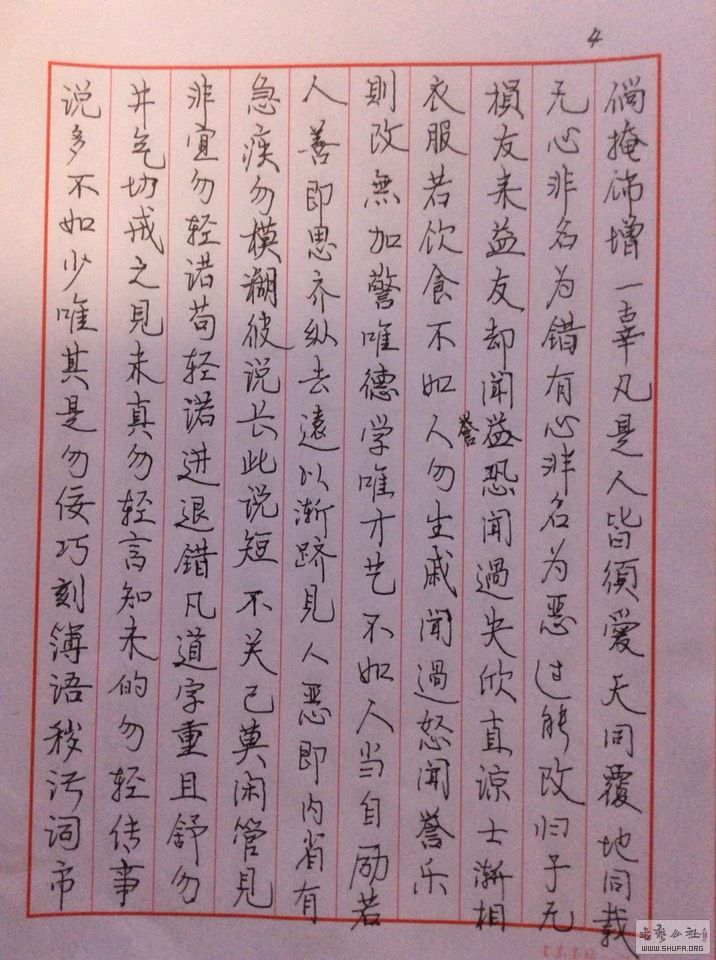 4
倘掩饰增一辜凡是人皆須愛天同覆地同载
无心非名为错有心非名为恶过能改归于无
損友来益友却聞益恐聞過失欣直谅士漸相
誉
衣服若饮食不如人勿生戚聞過怒聞誉乐
則改無加警唯德学唯才艺不如人当自励若
人善即思齐纵去遠以漸跻見人恶即内省有
急疾勿模糊彼说长此说短不关己莫闲管見
非宜勿轻诺苟轻诺进退错凡道字重且舒勿
井气切戒之見未真勿轻言知未的勿轻传事
说多不如少唯其是勿佞巧刻簿语秽污词市
WWW.SHUFA.ORG